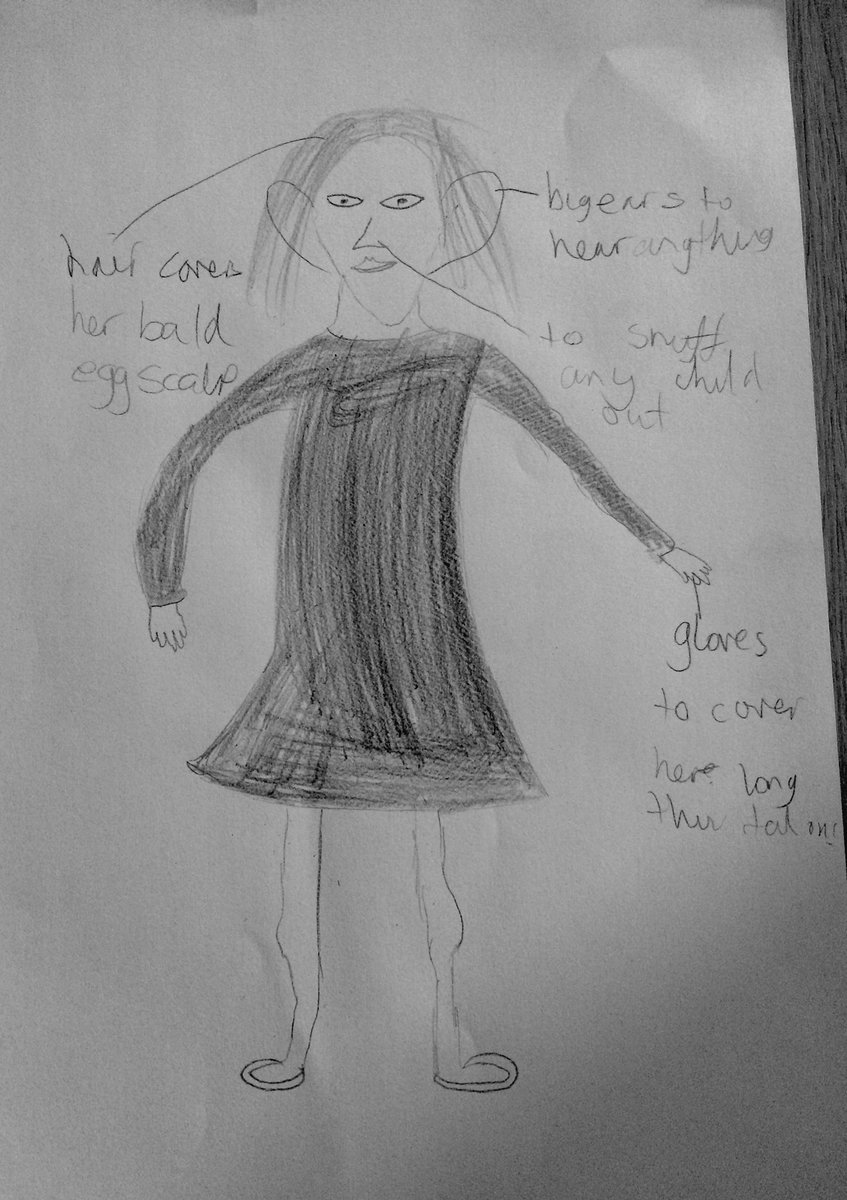 hair covers
her bald
egg scalp
big ears to
hear anything
to snuff
any child
out
gloves
to cover
here long
thin talons